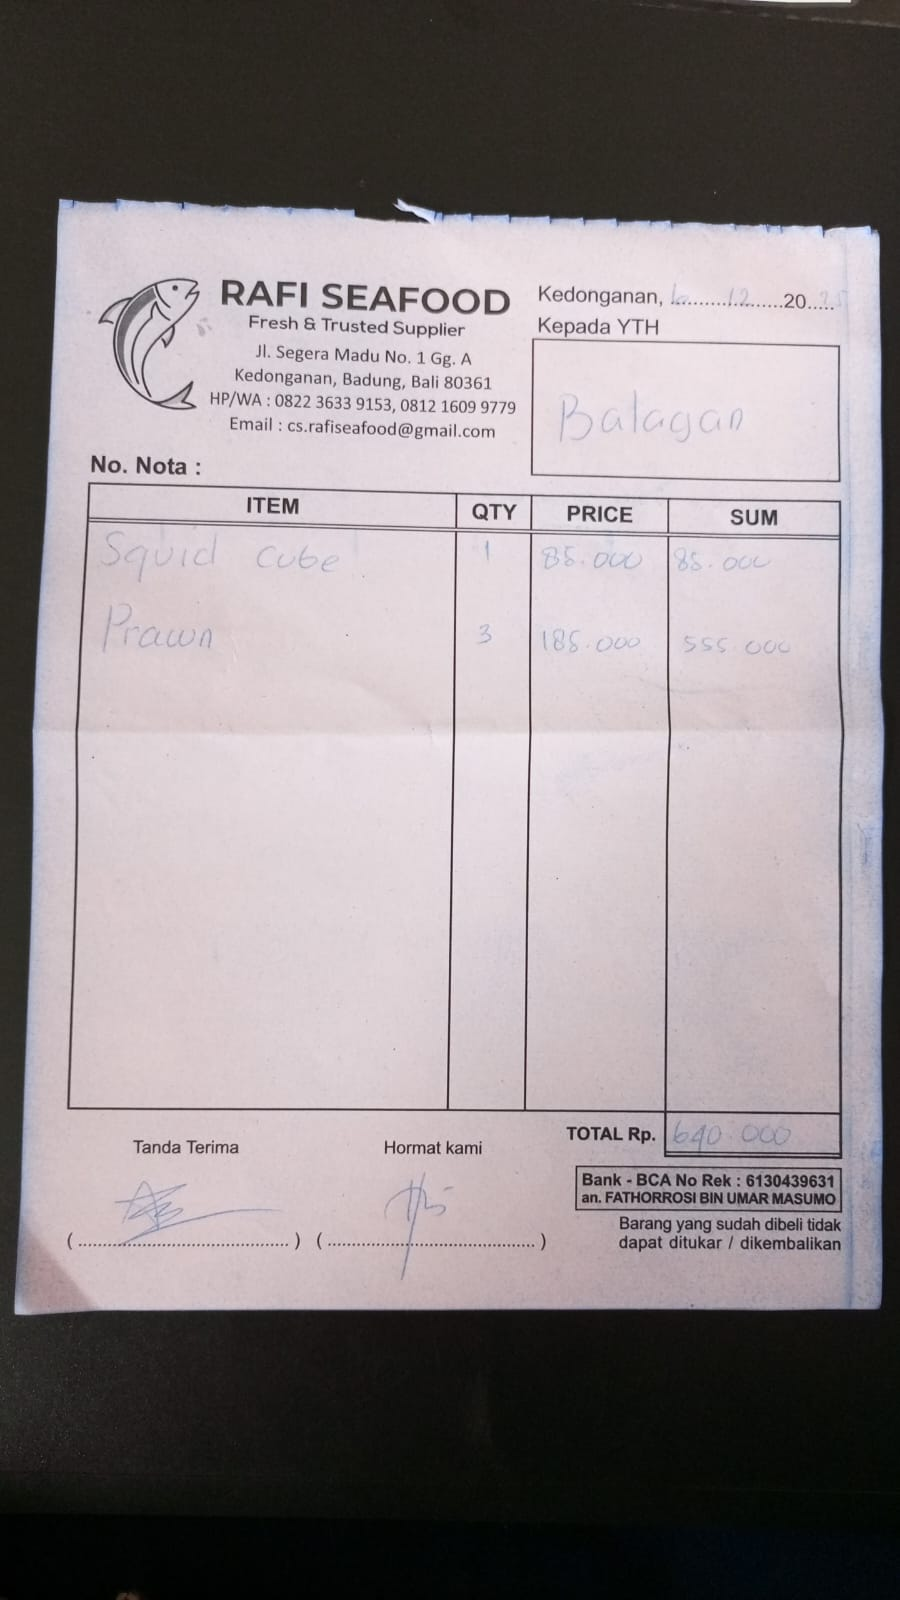 RAFI SEAFOOD
Fresh & Trusted Supplier
Jl. Segera Madu No. 1 Gg. A
Kedonganan, Badung, Bali 80361
HP/WA : 0822 3633 9153, 0812 1609 9779
Email : cs.rafiseafood@gmail.com
Kedonganan, ........12......20..25
Kepada YTH
Balagan
No. Nota :
ITEM QTY PRICE SUM
Squid cube 1 85.000 85.000
Prawn 3 185.000 555.000
TOTAL Rp. 640.000
Tanda Terima Hormat kami
Bank - BCA No Rek : 6130439631
an. FATHORROSI BIN UMAR MASUMO
Barang yang sudah dibeli tidak
dapat ditukar / dikembalikan